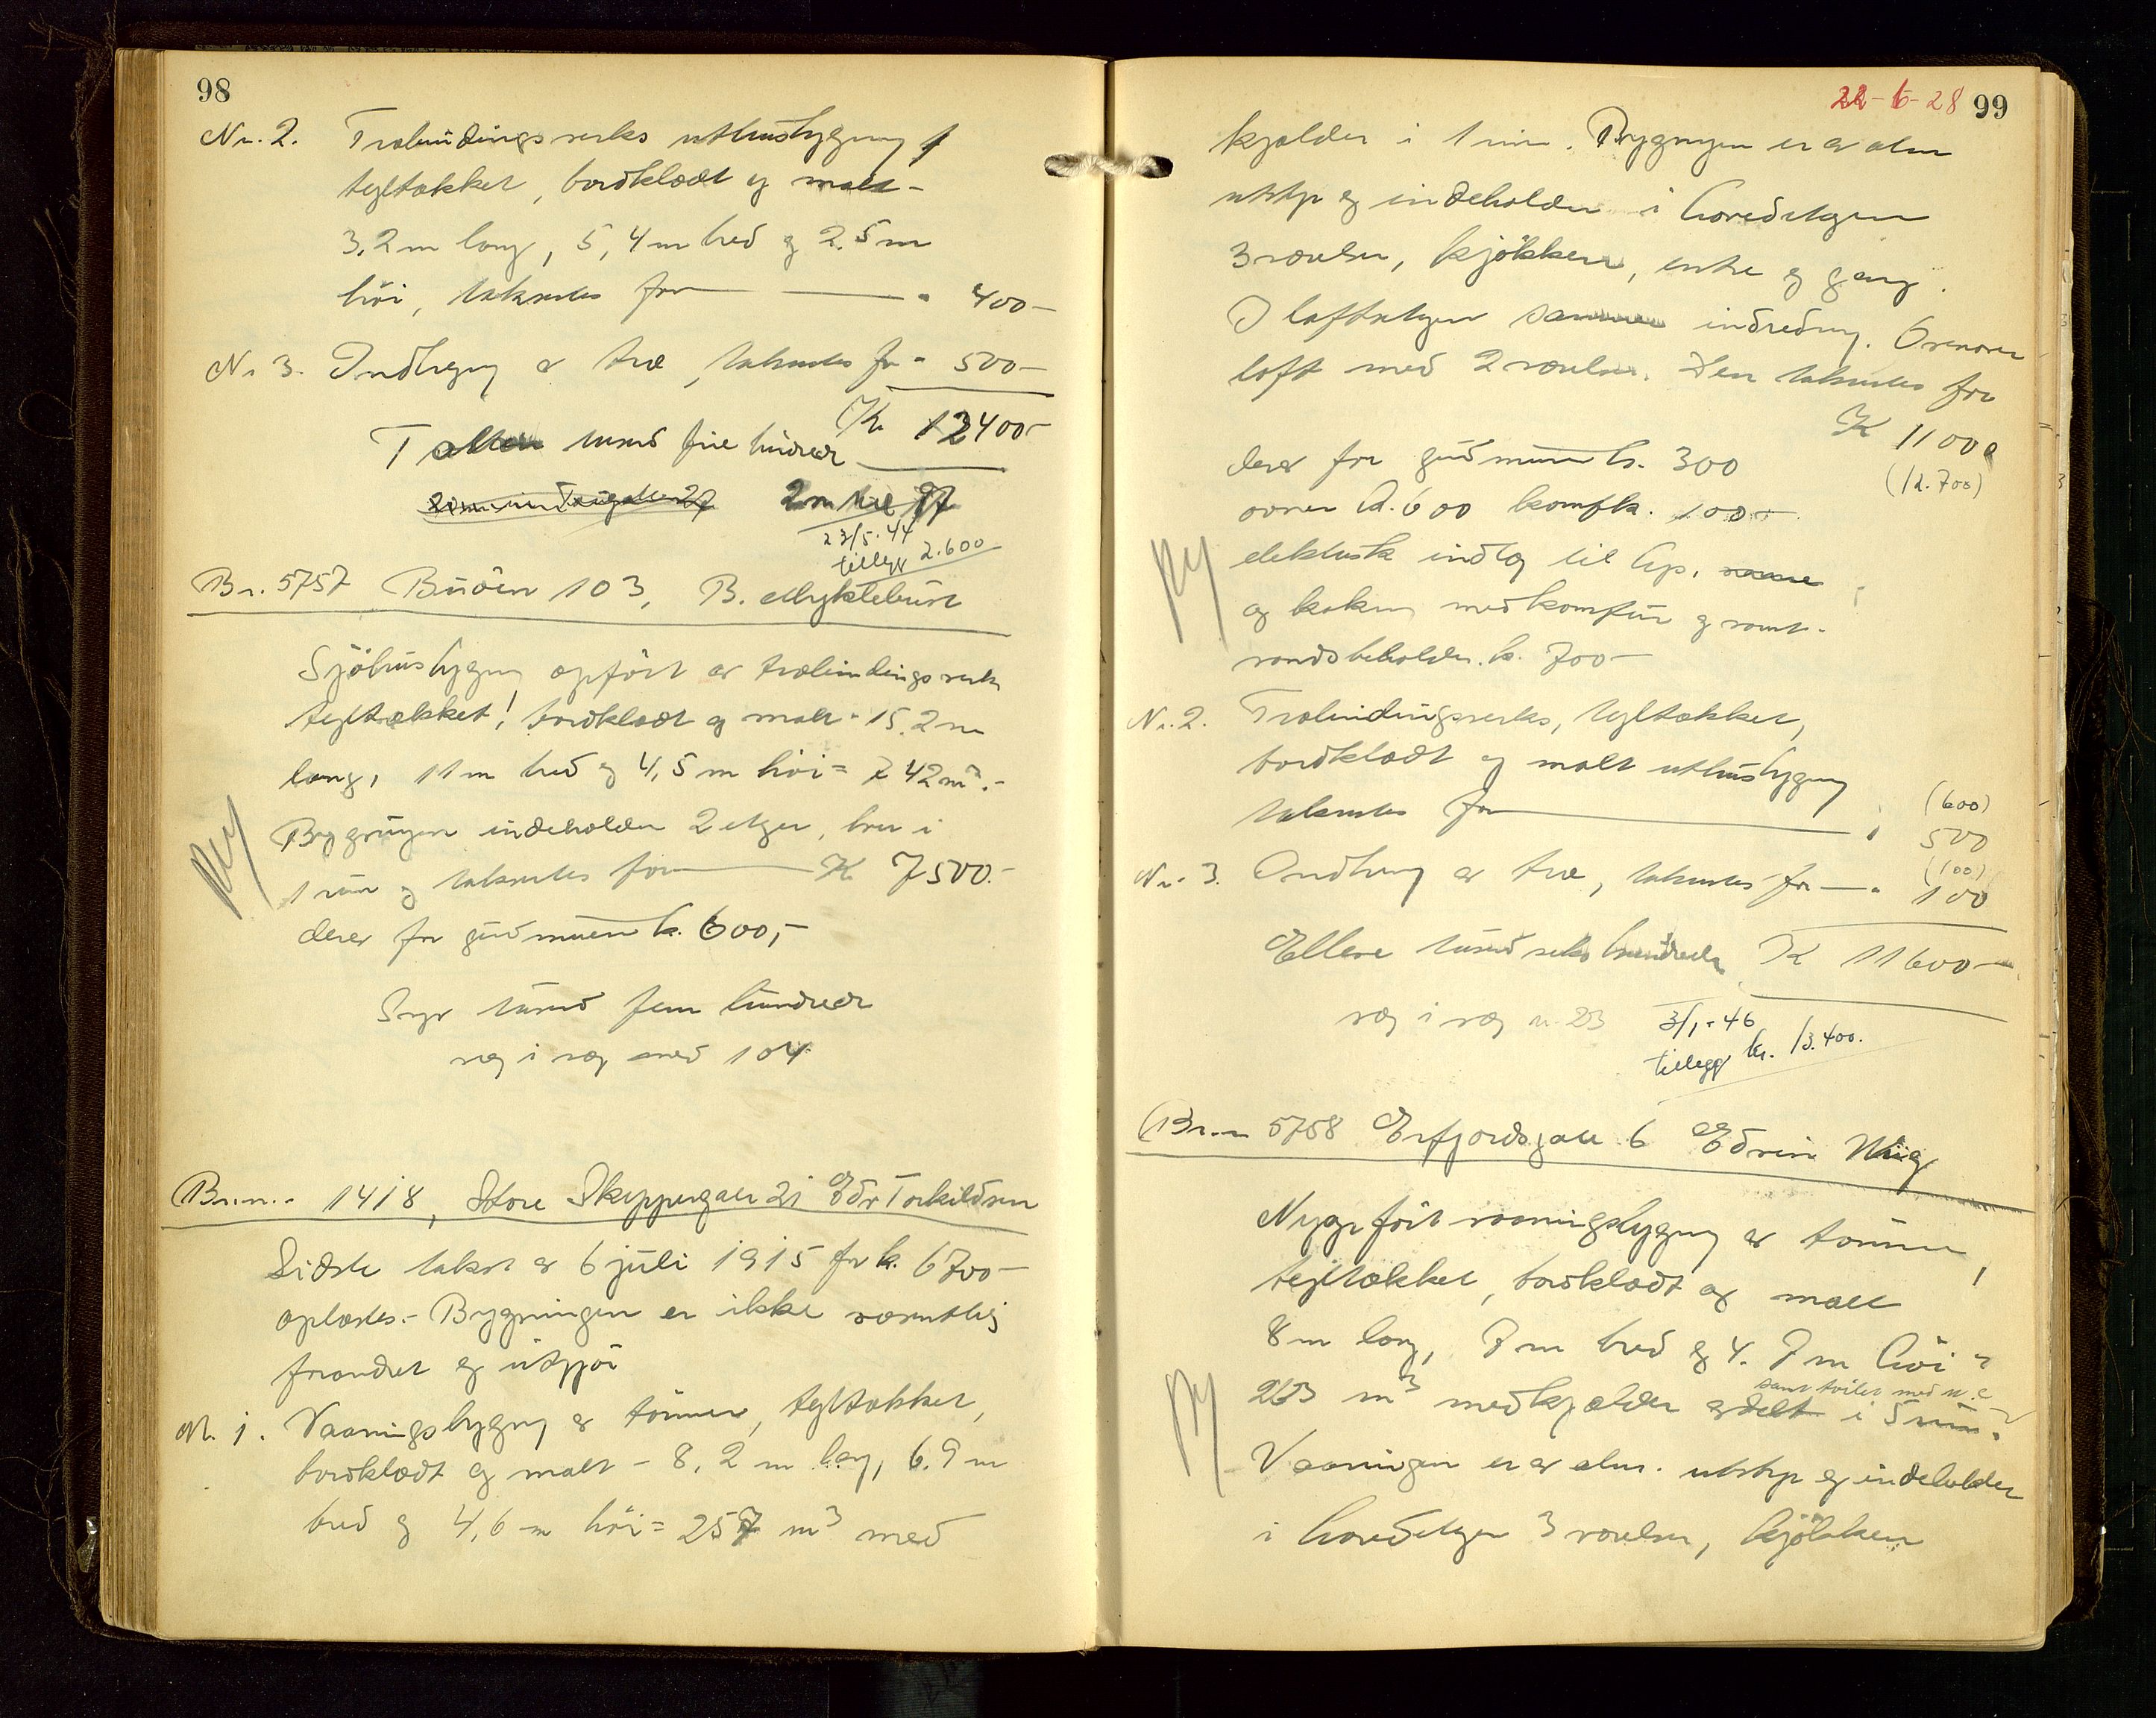 98
Nr. 2. Træbindingsverks uthusbygning
tegltækket, bordklædt og malt -
3,2 m lang, 5,4 m bred og 2.5 m
höi, takseres for — — " 400 -
Nr 3. Indhegng av træ, takseres for " 500 -
Kr. 12400 -
Tolv tusend fire hundrede
2 m til 97
23/5-44
tillegg 2.600
Br. 5757 Buöen 103, B. Myklebust
Sjöhusbygng opfört av træbindingsverk
tegltækket, bordklædt og malt - 15,2 m
lang, 11 m bred og 4,5 m höi = 742 m³. -
Ny
Bygningen indeholder 2 etager, hver i
1 rum og takseres for — Kr 7500. -
derav for grundmuren kr. 600,-
Syv tusend fem hundrede
væg i væg med 104
Br.nr. 1418, Store Skippergate 21 Edv Torkildsen
Sidste takst av 6 juli 1915 for kr. 6700 -
oplæstes. - Bygningen er ikke væsentlig
forandret og utgjör
Nr. 1. Vaaningsbygng av tömmer, tegltækket,
bordklædt og malt - 8,2 m lang, 6,9 m
bred og 4,6 m höi = 257 m³ med
22-6-28 99
kjælder i 1 rum. Bygningen er av alm
utstyr og indeholder i hovedetagen
3 værelser, kjökken, entre og gang.
I loftsetagen samme indredng. Ovenover
loft med 2 værelser. Den takseres for
Kr 11000
derav for grundmuren kr. 300
(12.700)
ovner kr. 600 komfk. 100 -
Ny
elektrisk indlæg til lys,
og kokng med komfur og samt
vandsbeholder kr. 700 -
Nr. 2. Træbindingsverks, tegltækket,
bordklædt og malt uthusbygng
(600)
takseres for — " 500
(100)
Nr. 3. Indhegng av træ, takseres for — " 100
Elleve tusend seks hundrede Kr 11600 -
væg i væg nr. 23
3/1-46
tillegg kr. 13.400.
Br.nr 5758 Erfjordsgate 6 Edvin
Nyopfört vaaningsbygng av tömmer,
tegltækket, bordklædt og malt
8 m lang, 7 m bred og 4.7 m höi =
samt toilet med w.c
Ny
263 m³ med kjælder og delt i 5 rum.
Vaaningen er av alm. utstyr og indeholder
i hovedetagen 3 værelser, kjökken